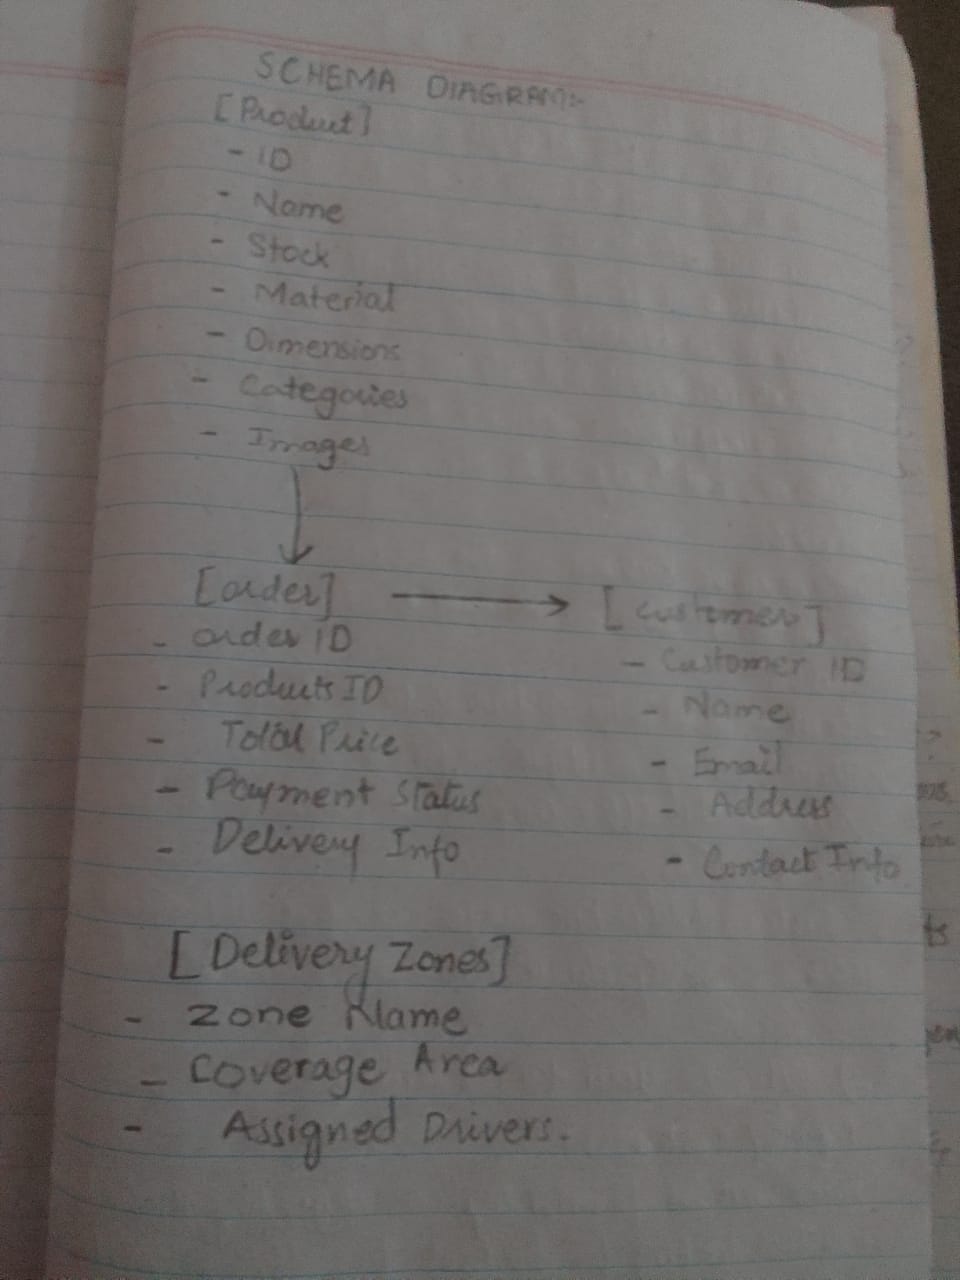 SCHEMA DIAGRAM:-
[Product]
- ID
- Name
- Stock
- Material
- Dimensions
- Categories
- Images
[order] → [customer]
- order ID
- Products ID
- Total Price
- Payment Status
- Delivery Info
- Customer ID
- Name
- Email
- Address
- Contact Info
[Delivery Zones]
- Zone Name
- Coverage Area
- Assigned Drivers.